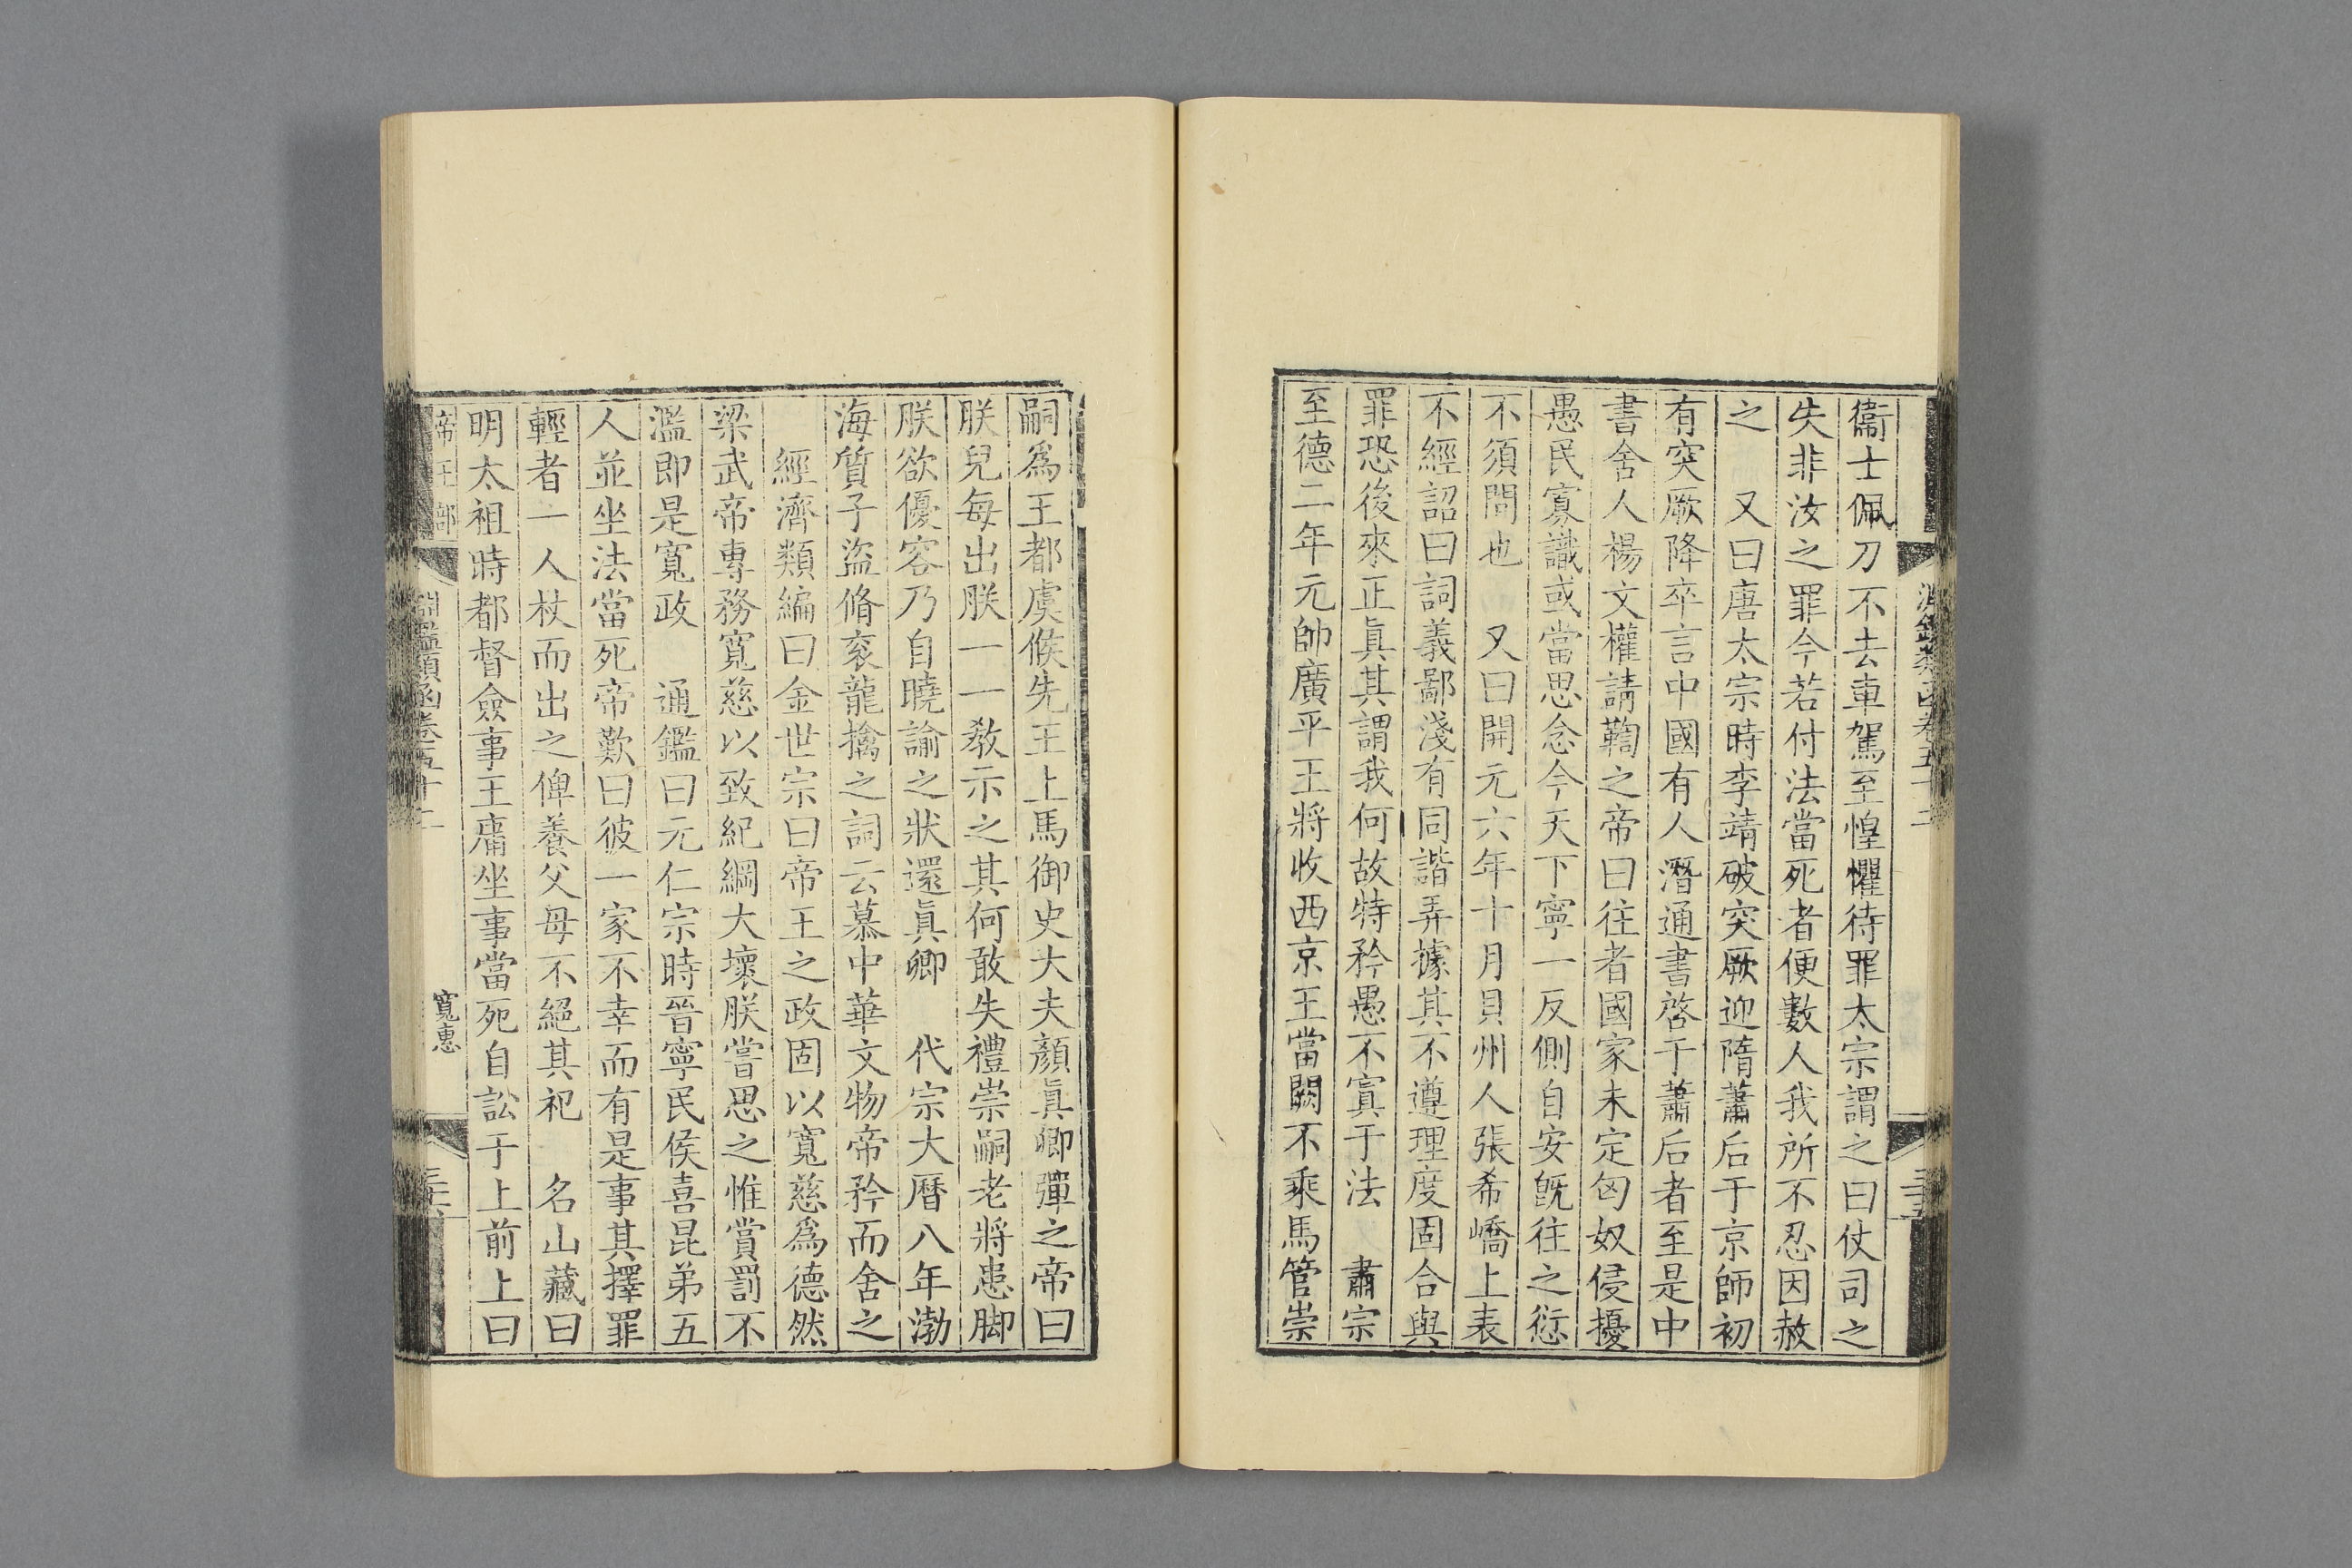 淵鑑類函卷五十二
衞士佩刀不去車駕至惶懼待罪太宗謂之曰仗司之
失非汝之罪今若付法當死者便數人我所不忍因赦
之　又曰唐太宗時李靖破突厥迎隋蕭后于京師初
有突厥降卒言中國有人潛通書啓于蕭后者至是中
書舍人楊文權請鞫之帝曰往者國家未定匈奴侵擾
愚民寡識或當思念今天下寧一反側自安旣往之愆
不須問也　又曰開元六年十月貝州人張希嶠上表
不經詔曰詞義鄙淺有同諧弄據其不遵理度固合與
罪恐後來正眞其謂我何故特矜愚不寘于法　肅宗
至德二年元帥廣平王將收西京王當闕不乘馬管崇
嗣爲王都虞候先王上馬御史大夫顏眞卿彈之帝曰
朕兒每出朕一一教示之其何敢失禮崇嗣老將患脚
朕欲優容乃自曉諭之狀還眞卿　代宗大曆八年渤
海質子盜脩衮龍擒之詞云慕中華文物帝矜而舍之
經濟類編曰金世宗曰帝王之政固以寬慈爲德然
梁武帝專務寬慈以致紀綱大壞朕嘗思之惟賞罰不
濫即是寬政　通鑑曰元仁宗時晉寧民侯喜昆弟五
人並坐法當死帝歎曰彼一家不幸而有是事其擇罪
輕者一人杖而出之俾養父母不絕其祀　名山藏曰
明太祖時都督僉事王庸坐事當死自訟于上前上曰
帝王部　淵鑑類函卷五十二　寬惠